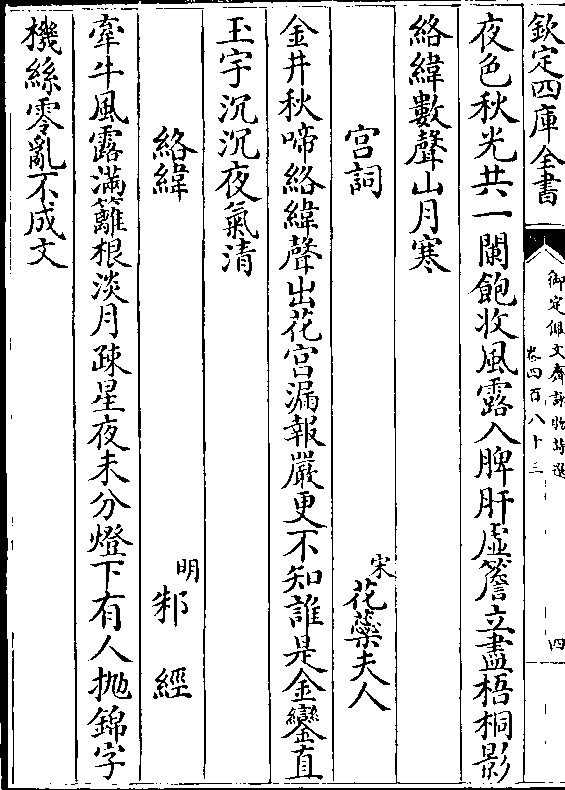 欽定四庫全書
御定佩文齋詠物詩選
卷四百八十三
四
夜色秋光共一闌飽收風露入脾肝虛簷立盡梧桐影
絡緯數聲山月寒
宮詞
宋花蘂夫人
金井秋啼絡緯聲出花宮漏報嚴更不知誰是金鑾直
玉宇沉沉夜氣清
絡緯
明邾經
牽牛風露滿籬根淡月疎星夜未分燈下有人拋錦字
機絲零亂不成文